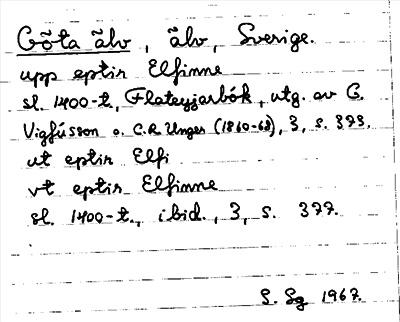 Göta älv, älv, Sverige.
upp eptir Elfinne
sl. 1400-t, Flateyjarbók, utg. av G.
Vigfússon o. C.R. Unger (1860-68), 3, s. 373.
ut eptir Elfi
vt eptir Elfinne
sl. 1400-t., ibid., 3, s. 377.
S. Sg 1967.